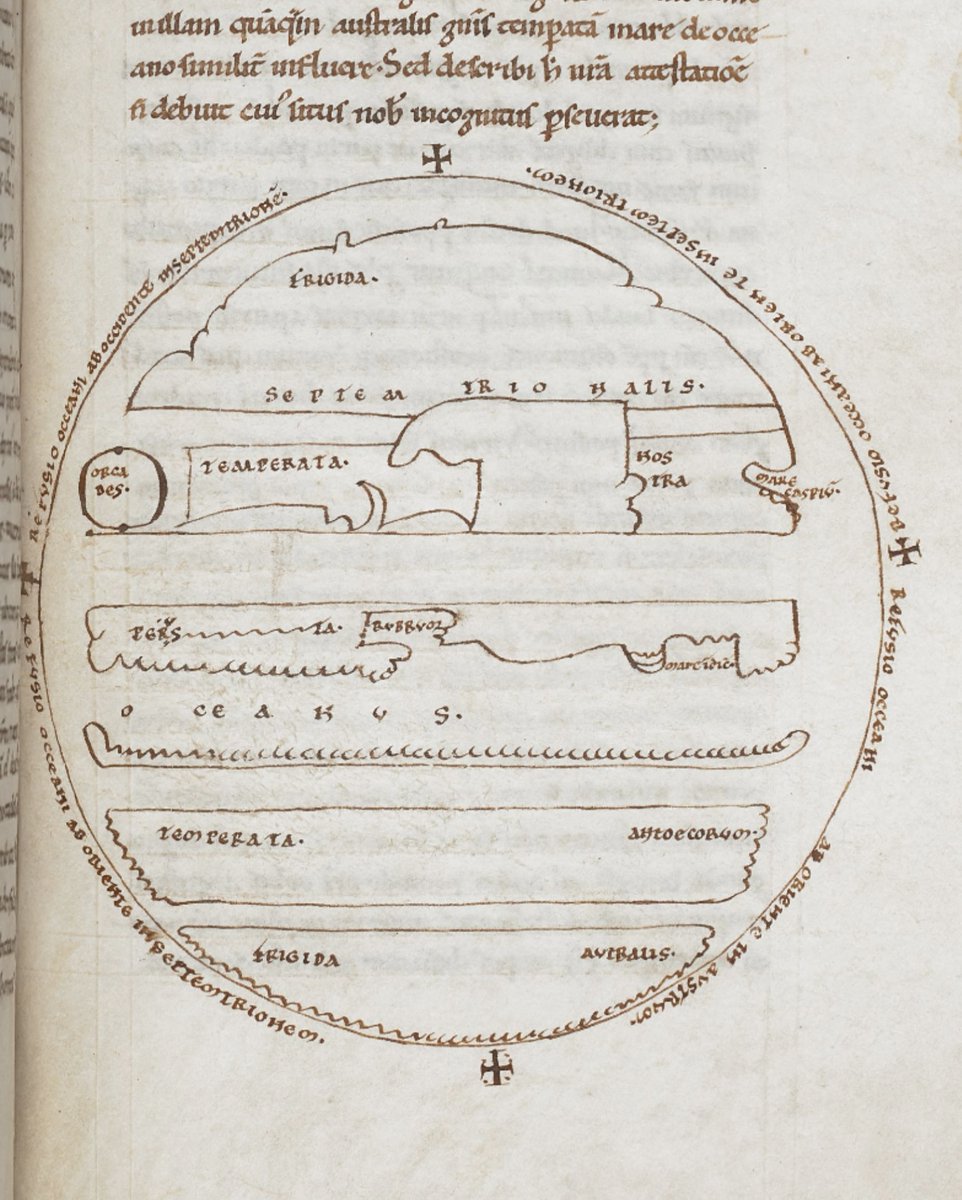 nullam quāq̄in australis gn̄is temp̄atā mare de occe
ano similit̄ influere. Sed describi h̄ nr̄ā attestatiōe
n̄ debuit cuiꝰ situs nob̄ incognitus p̱seuerat;
REFVSIO OCCEANI AB OCCIDENTE IN SEPTEMTRIONĒ.
REFVSIO OCCEANI AB ORIENTE IN SEPTEMTRIONEM.
FRIGIDA.
SEPTEMTRIONALIS.
ORCA
DES.
TEMPERATA.
NOS
TRA
MARE
CASPIŪ.
TA.
RVBRVM
MARE INDIC
OCEANVS.
REFVSIO OCCEANI
TEMPERATA.
ANTOECORVM.
FRIGIDA
AVTRALIS.
REFVSIO OCCEANI AB ORIENTE IN SEPTEMTRIONEM.
AB ORIENTE IN AVSTRVM.